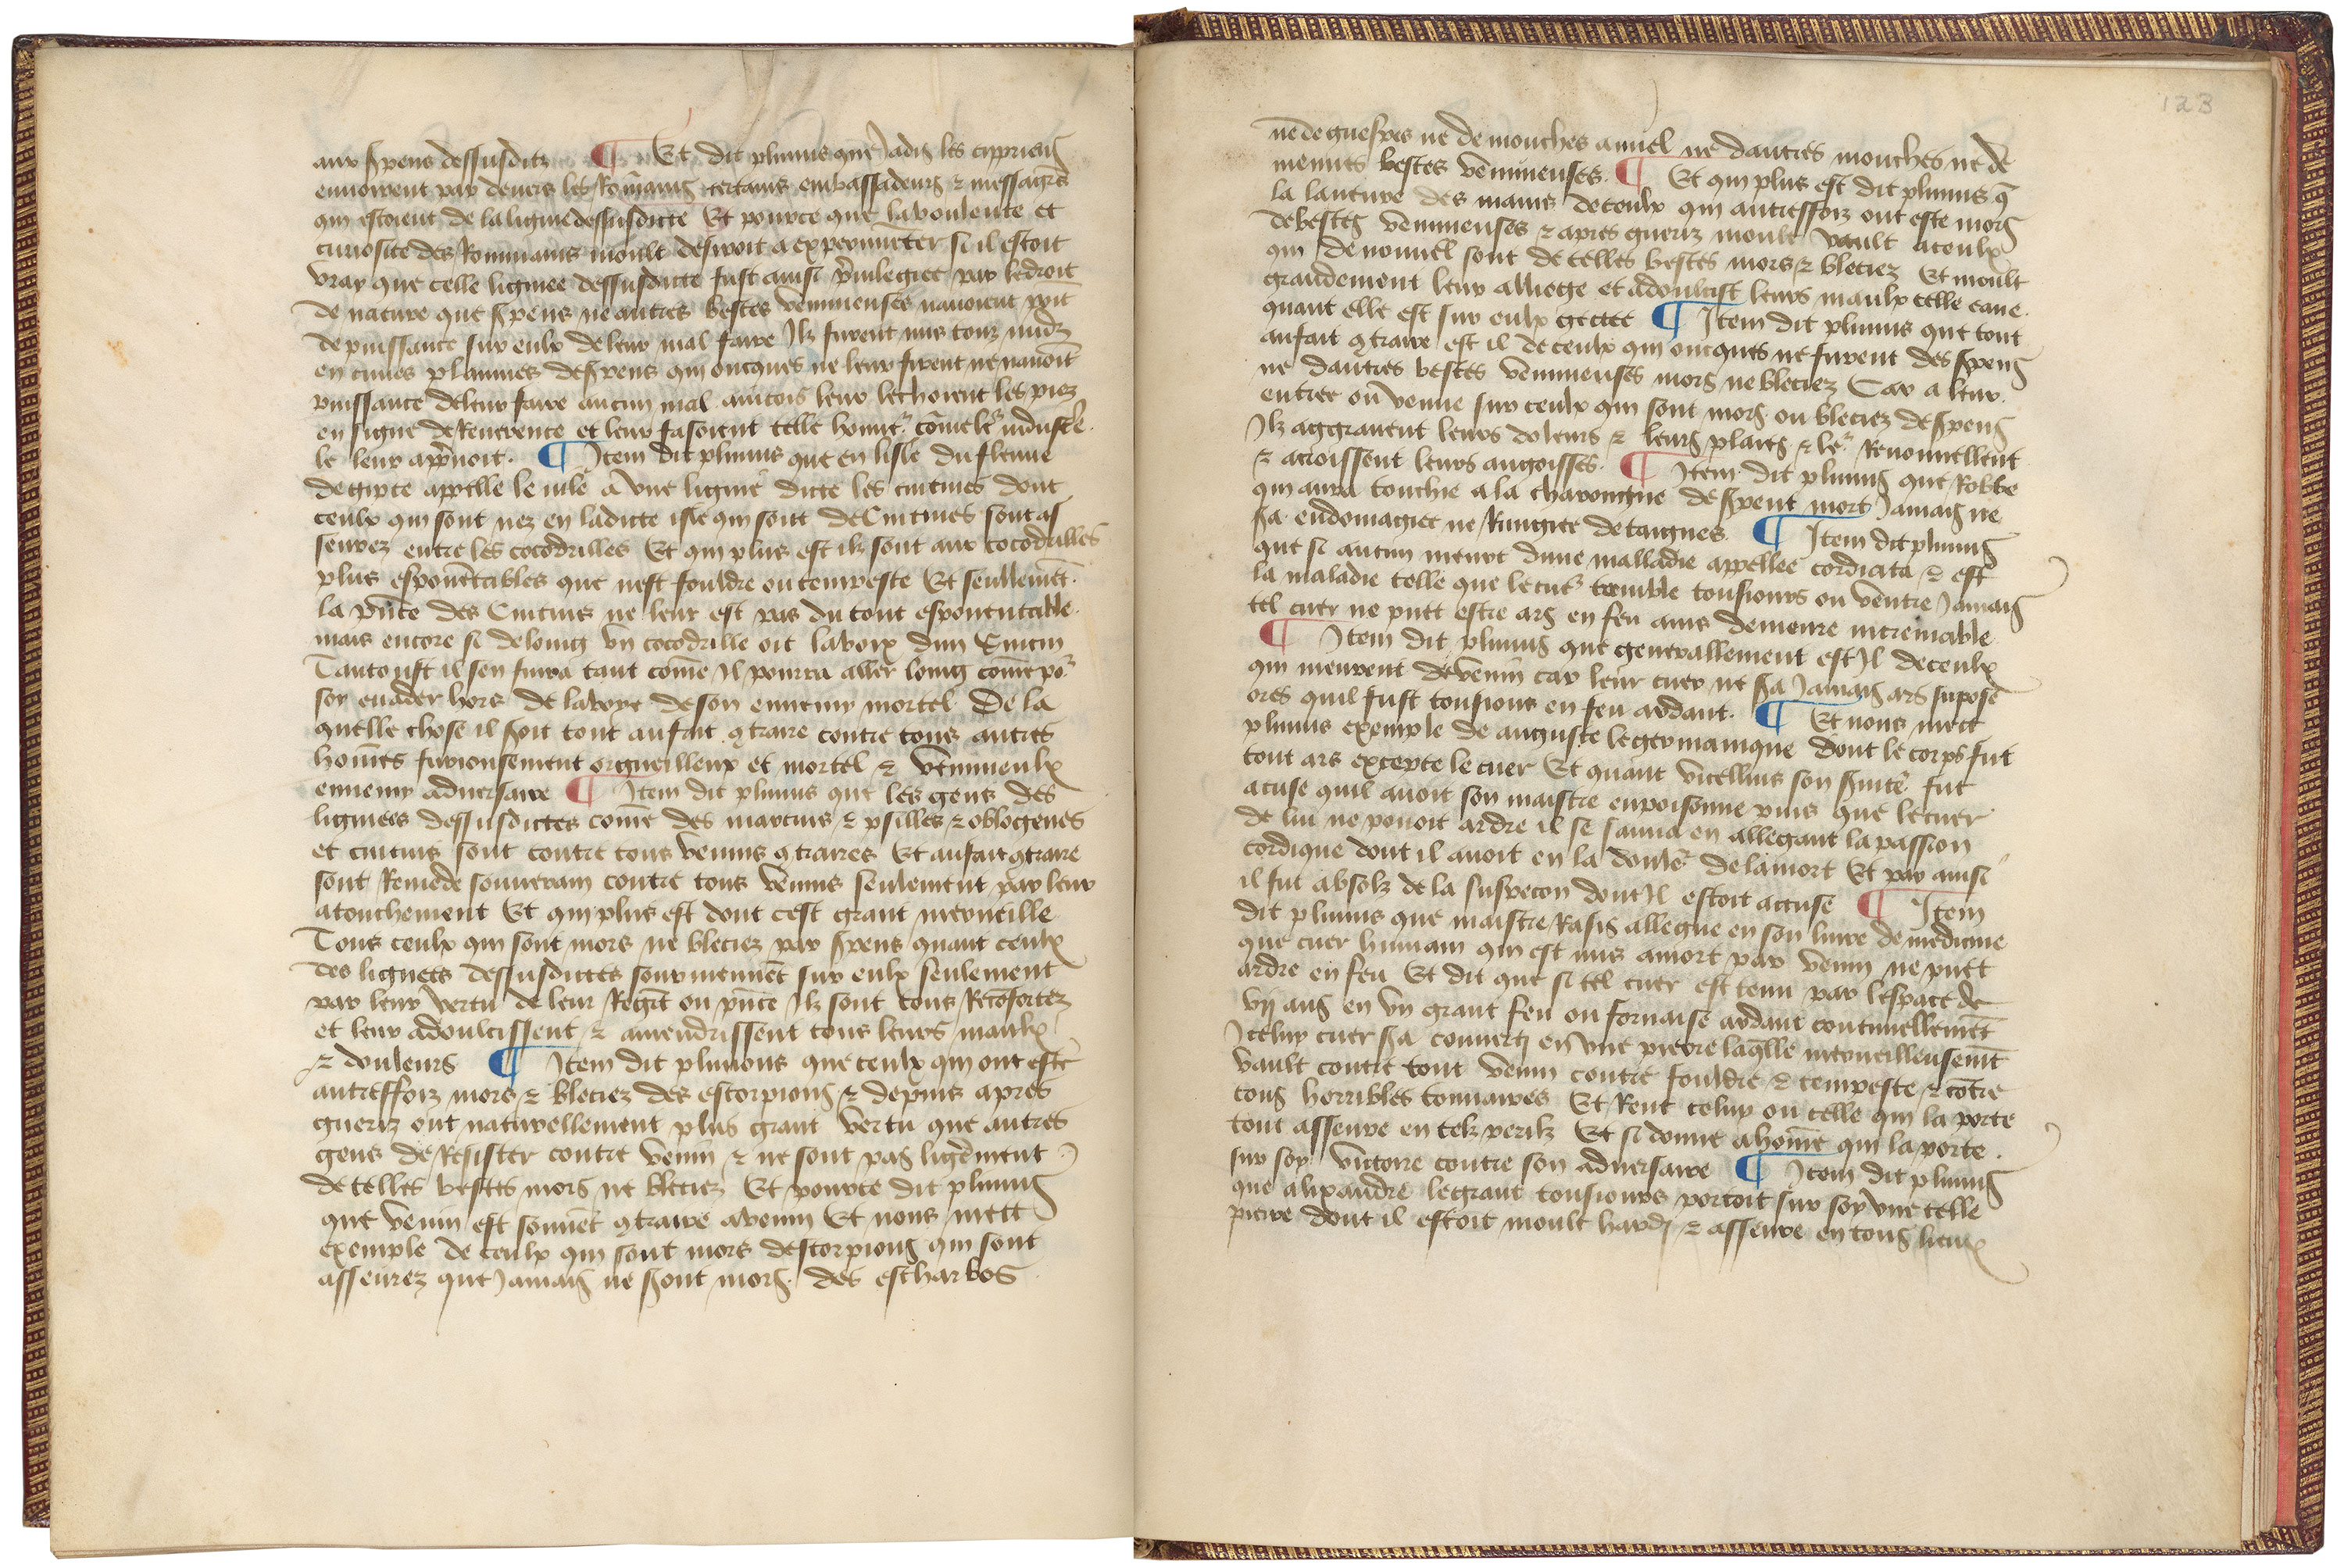 aux ſpens deſſuſditz ¶ Et dit plinius que Jadis les cipriens
enuoierent par deuers les Rom̄ains certains embaſſadeurs ⁊ meſſagers
qui eſtoient de la lignie deſſuſdicte Et pource que la voulente et
curioſite des Rommains moult deſiroit a experimēter ſe il eſtoit
vray que celle lignee deſſuſdicte fuſt ainſi p̄uilegiee par le droit
de nature que ſpens ne autres beſtes venimeuſes nauoient poīt
de puiſſance ſur eulx de leur mal faire Ilz furent mis tous nudz
en cuues plaines de ſpens qui oncques ne leur firent ne nauoīt
puiſſance de leur faire aucun mal aincois leur lechoient les piez
en ſigne de Reuerence et leur faſoient telle honnr̄ cōme le᷑ nduſtr̄e
le leur app̄noit . ¶ Item dit plinius que en liſle du fleuue
degipte appelle le nile a vne lignie dicte les cincines dont
ceulx qui ſont nez en ladicte iſle qui ſont de Cincines ſont aſ
ſeurez entre les cocodrilles Et qui plus eſt ilz ſont aux cocodrilles
plus eſpouētables que neſt fouldre ou tempeſte Et ſeullemēt .
la p̄nce des Cincins ne leur eſt pas du tout eſpouentable .
mais encore ſe de loing vn cocodrille oit la voix dun Cincin
Tantouſt il ſen fuira tant com̄e Il pourra aller loing com̄e po᷑
ſoy euader hors de la voye de ſon ennemy mortel De la
quelle choſe il ſcoit tout au fait ꝯtraire contre tous autres
hom̄es furieuſement orgueilleux et mortel ⁊ venimeulx
ennemy aduerſaire ¶ Item dit plinius que les gens des
lignees deſſuſdictes com̄e des marcins ⁊ pſilles ⁊ oblogenes
et cincins ſont contre tous venins ꝯtraires Et au fait ꝯtraire
ſont Remede ſouuerain contre tous venins ſeulement par leur
atouchement Et qui plus eſt dont ceſt grant merueille
Tous ceulx qui ſont mors ne bleciez par ſpens quant ceulx
des lignees deſſuſdictes ſouruiennēt ſur eulx ſeulement
par leur vertu de leur Regāt ou p̄nce Ilz ſont tous Recōfortez
et leur adoulciſſent ⁊ amendriſſent tous leurs maulx
⁊ douleurs ¶ Item dit plinious que ceulx qui ont eſte
autreffoiz mors ⁊ bleciez des eſcorpions ⁊ depuis apres
gueriz ont naturellement plus grant vertu que autres
gens de Reſiſter contre venin ⁊ ne ſont pas legierement
de telles beſtes mors ne bleciez Et pource dit plinius
que venin eſt ſouuēt ꝯtraire a venin Et nous mett
exemple de ceulx qui ſont mors deſcorpions qui ſont
aſſeurez que Jamais ne ſont mors . des eſcharbos
ne de gueſpes ne de mouches a miel ne dautres mouches ne de
menues beſtes venimeuſes . ¶ Et qui plus eſt dit plinius q̄
la lauture des mains de ceulx qui autreffoiz ont eſte mors
de beſtes venimeuſes ⁊ apres gueriz moult vault a ceulx
qui de nouuel ſont de telles beſtes mors ⁊ bleciez Et moult
grandement leur allege et adoulciſt leurs maulx telle eaue .
quant elle eſt ſur eulx gectee ¶ Item dit plinius que tout
au fait ꝯtraire eſt il de ceulx qui oncques ne furent des ſpens
ne dautres beſtes venimeuſes mors ne bleciez Car a leur .
entree ou venue ſur ceulx qui ſont mors ou bleciez de ſpens
Ilz aggrauent leurs doleurs ⁊ leurs plaies ⁊ le᷑ Renouuellent
⁊ acroiſſent leurs angoiſſes . ¶ Item dit plinius que Robbe
qui aura touchie a la charongne de ſpent mort Jamais ne
ſa endomagiee ne Rungiee de taignes . ¶ Item dit plinius
que ſe aucun meurt dune malladie appellee cordiaca ⁊ eſt
la maladie telle que le cue᷑ tremble touſiours ou ventre Jamais
tel cuer ne puet eſtre ars en feu ains demeure incremable
¶ Item dit plinius que generallement eſt Il de ceulx
qui meurent de venin car leur cuer ne ſa Jamais ars ſupoſe
ores quil fuſt touſious en feu ardant . ¶ Et nous mect
plinius exemple de auguſte le germanique dont le corps fut
tout ars excepte le cuer Et quant vitellius ſon ſuite᷑ fut
acuſe quil auoit ſon maiſtre enpoiſonne puis que le cuer
de lui ne pouoit ardre il ſe ſauua en allegant la paſſion
cordique dont il auoit en la doule᷑ de la mort Et par ainſi
il fut abſolz de la ſuſpecon dont Il eſtoit accuſe ¶ Item
dit plinius que maiſtre Raſis allegue en ſon liure de medicine
que cuer humain qui eſt mis a mort par venin ne puet
ardre en feu Et dit que ſe tel cuer eſt tenu par leſpace de
vij ans en vn grant feu ou fornaiſe ardant continuellemēt
Icelui cuer ſa conuerty en vne pierre laq̄lle merueilleuſemt̄
vault contre tout venin contre fouldre ⁊ tempeſte ⁊ cōtre
tous horribles tonnaires Et Rent celuy ou celle qui la porte
tout aſſeure en telz perilz Et ſi donne a hom̄e qui la porte .
ſur ſoy victoire contre ſon aduerſaire ¶ Item dit plinius
que alixandre le grant touſiours portoit ſur ſoy vne telle
pierre dont il eſtoit moult hardy ⁊ aſſeure en tous lieux
123